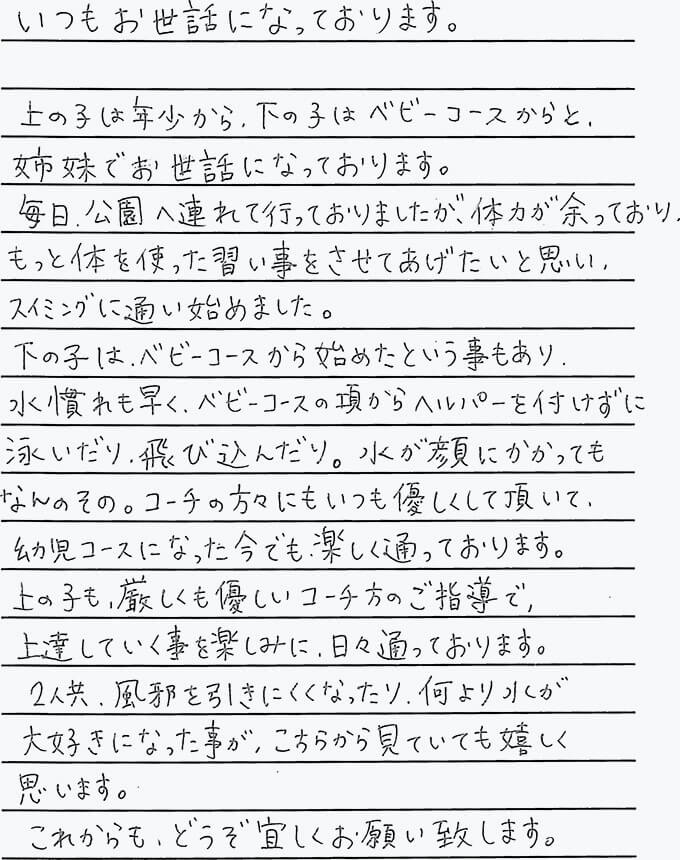 いつもお世話になっております。
上の子は年少から、下の子はベビーコースからと、
姉妹でお世話になっております。
毎日、公園へ連れて行っておりましたが、体力が余っており、
もっと体を使った習い事をさせてあげたいと思い、
スイミングに通い始めました。
下の子は、ベビーコースから始めたという事もあり、
水慣れも早く、ベビーコースの項からヘルパーを付けずに
泳いだり、飛び込んだり。水が顔にかかっても
なんのその。コーチの方々にもいつも優しくして頂いて、
幼児コースになった今でも、楽しく通っております。
上の子も、厳しくも優しいコーチ方のご指導で、
上達していく事を楽しみに、日々通っております。
2人共、風邪を引きにくくなったり、何より水が
大好きになった事が、こちらから見ていても嬉しく
思います。
これからも、どうぞ宜しくお願い致します。